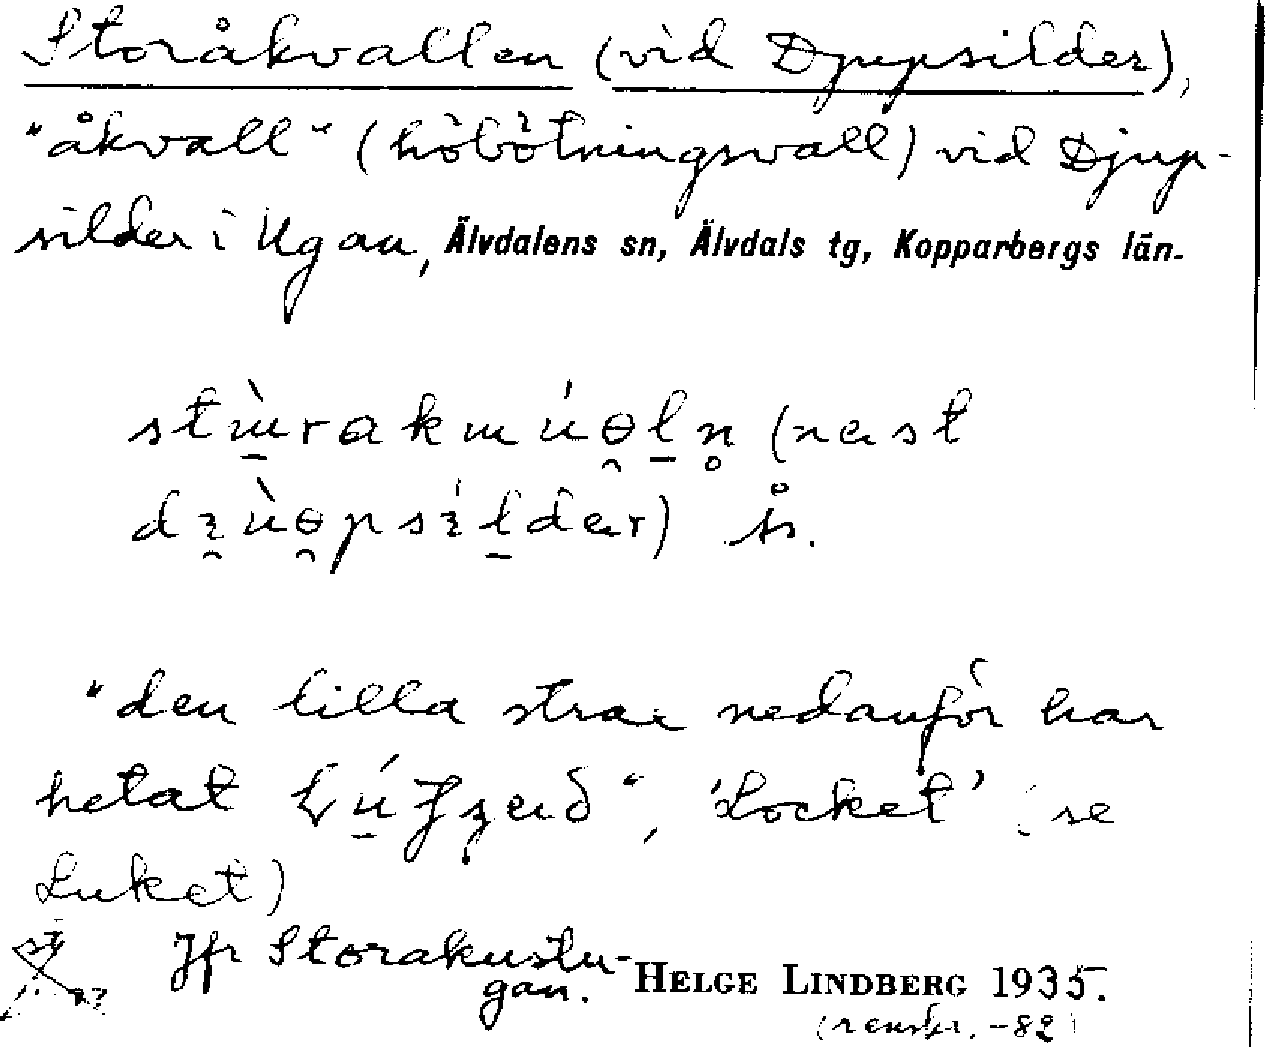 Storåkvallen (vid Djupsilder),
"åkvall" (höbötningsvall) vid Djup-
silder i Ugan, Älvdalens sn, Älvdals tg, Kopparbergs län.
(næst
"den lilla strax nedanför har
hetat 'Locket' (se
Luket)
Jfr Storakustu-
gan. HELGE LINDBERG 1935.
(renskr. -82)